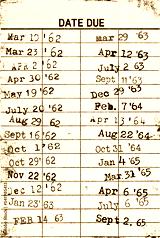 DATE DUE
Mar 10 '62 mar 29 '63
Mar 23 '62 Apr 12 '63
Apr 2 '62 July 2 63
Apr 30 '62 Sept 11 '63
May 19 '62 Dec 29 '63
July 20 '62 Feb. 7 '64
Aug 29 62 Apr 13 '64
Sept 16 '62 Aug 22 '64
Oct 1 '62 Oct 31 '64
Oct 29 '62 Jan 4 '65
Nov 22 '62 Mar 31 '65
Dec 12 '62 Apr 6 '65
Jan 23 '63 July 6 '65
FEB 14 63 Sept 2. 65